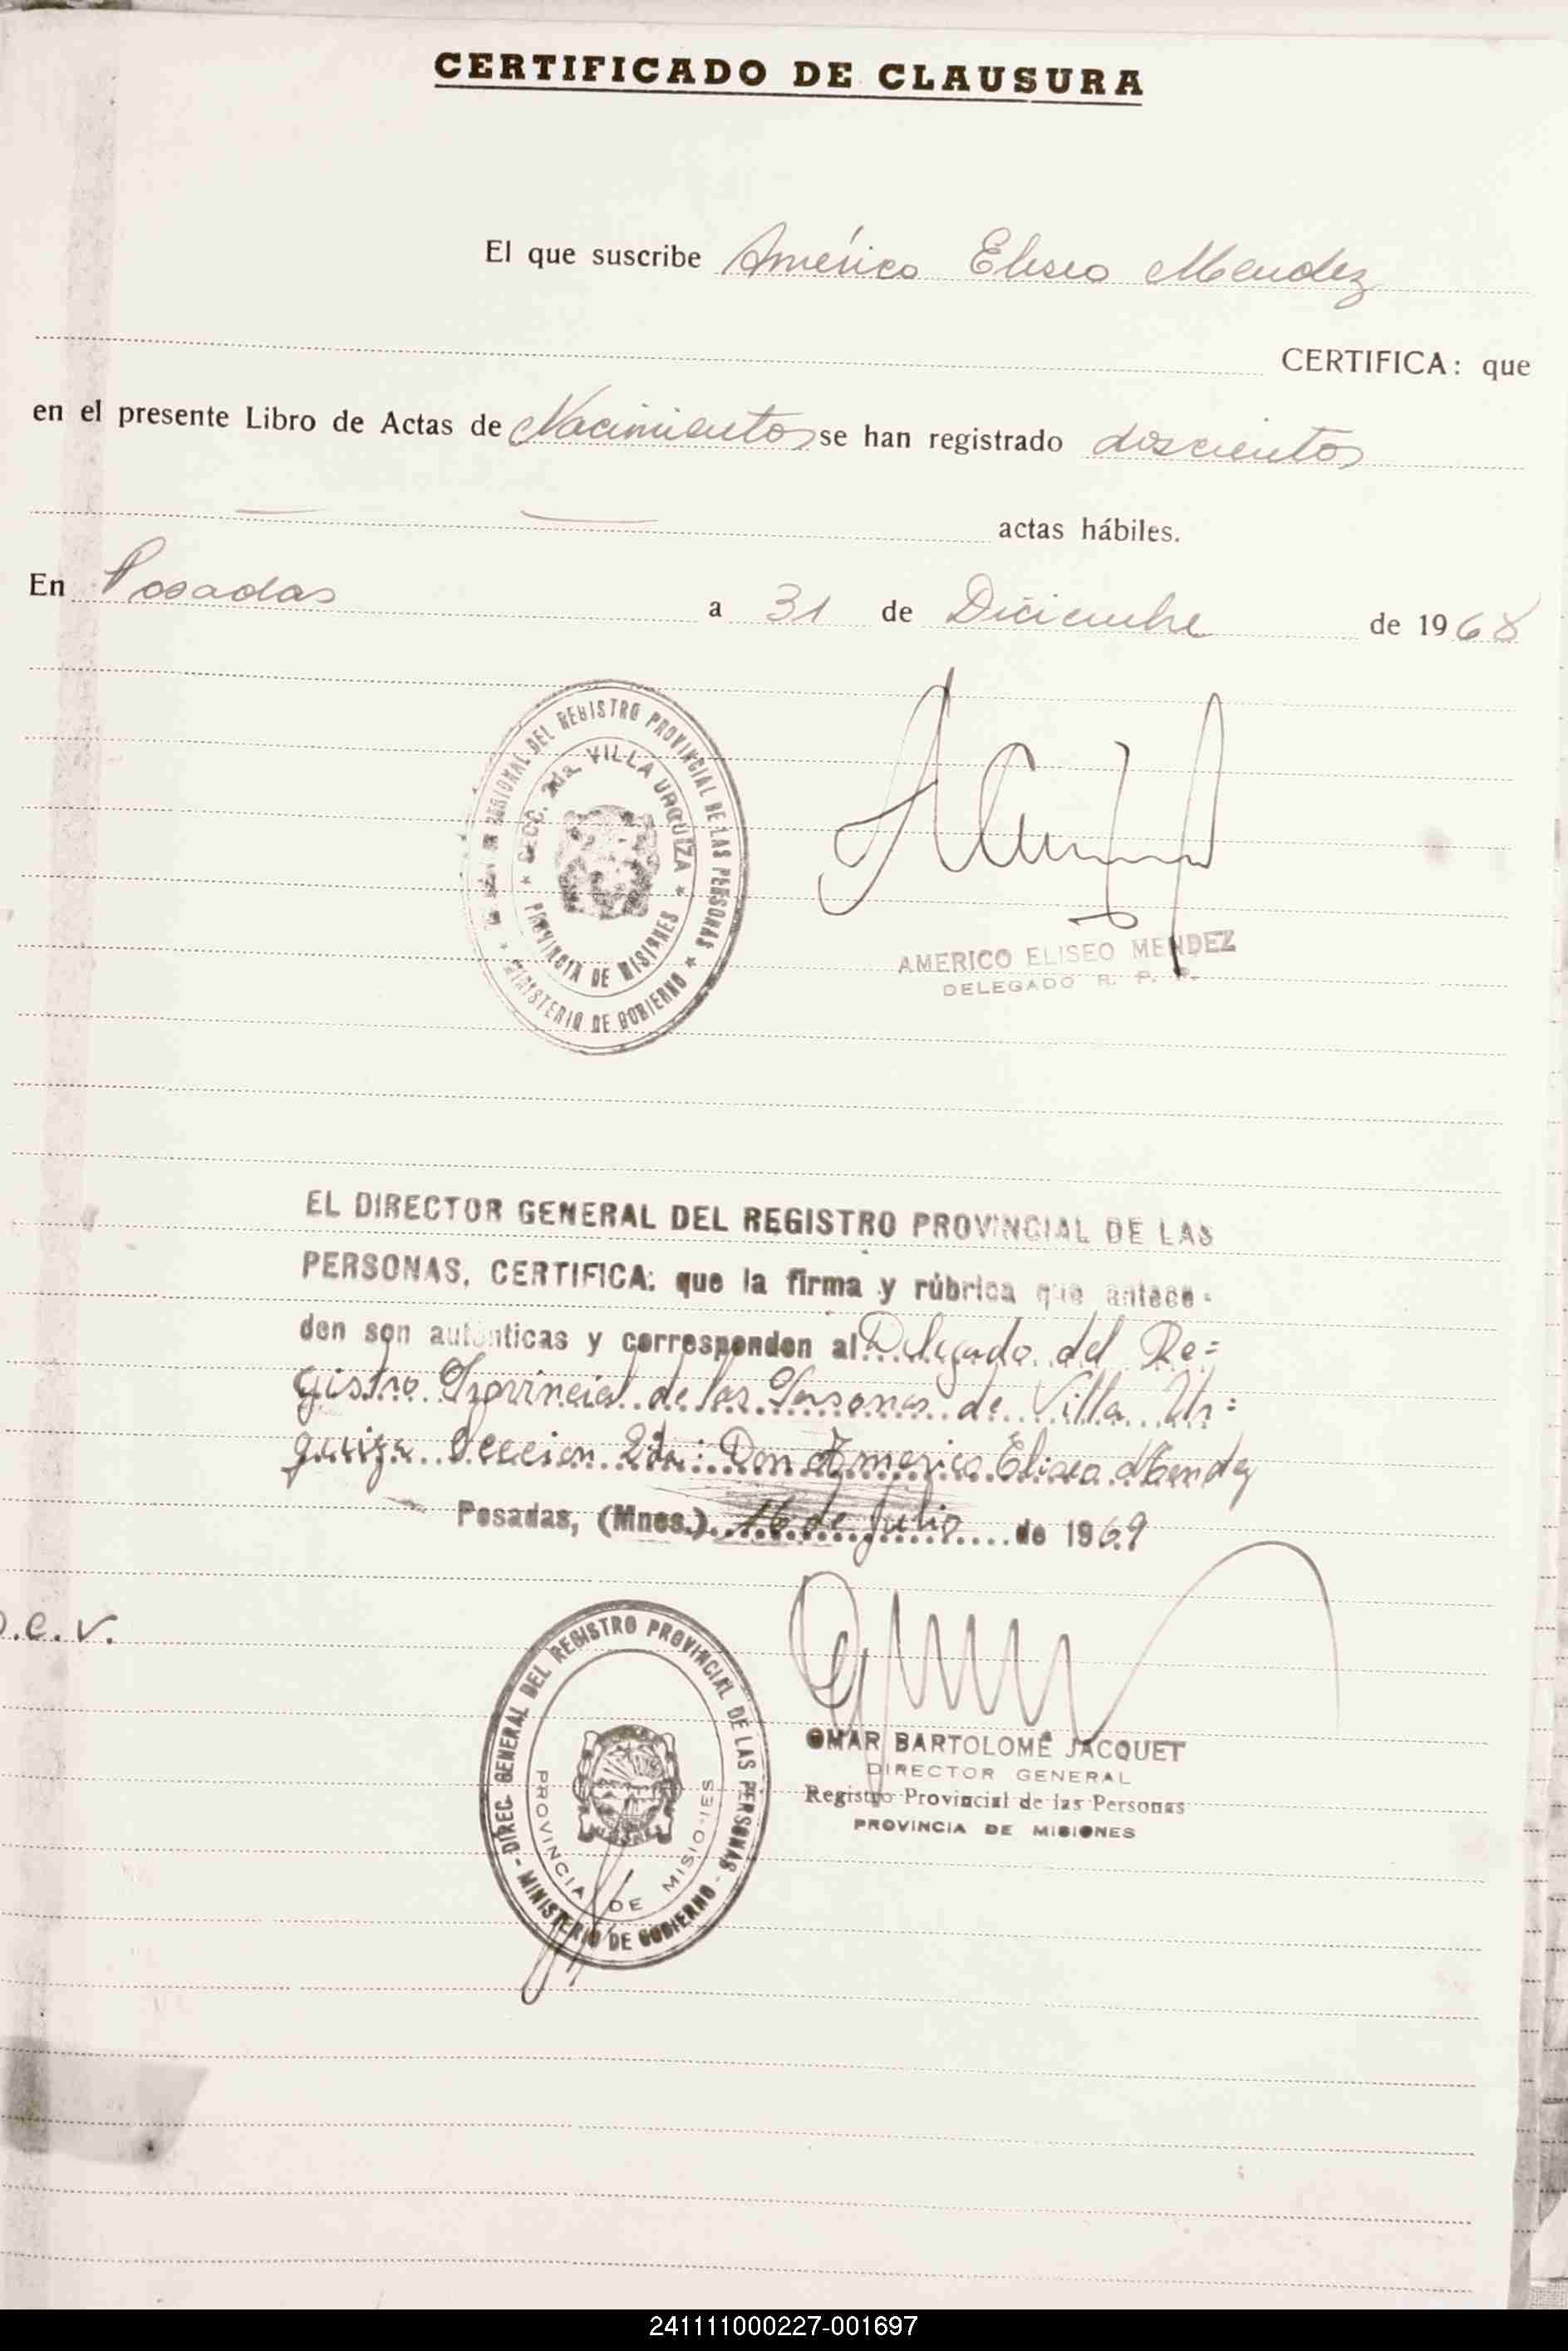 CERTIFICADO DE CLAUSURA
El que suscribe Américo Eliseo Mendez
CERTIFICA: que
en el presente Libro de Actas de Nacimientos se han registrado doscientos
actas hábiles.
En Posadas a 31 de Diciembre de 1968
REGIONAL DEL REGISTRO PROVINCIAL DE LAS PERSONAS
★ SECC. 2da. VILLA URQUIZA ★
PROVINCIA DE MISIONES
★ MINISTERIO DE GOBIERNO ★
AMERICO ELISEO MENDEZ
DELEGADO R. P. P.
EL DIRECTOR GENERAL DEL REGISTRO PROVINCIAL DE LAS
PERSONAS, CERTIFICA: que la firma y rúbrica que antece-
den son auténticas y corresponden al Delegado del Re=
gistro Provincial de las Personas de Villa Ur=
quiza Seccion 2da: Don Americo Eliseo Mendez
Posadas, (Mnes.) 16 de Julio de 1969
.e.v.
DIREC. GENERAL DEL REGISTRO PROVINCIAL DE LAS PERSONAS
PROVINCIA DE MISIONES
- MINISTERIO DE GOBIERNO -
OMAR BARTOLOMÉ JACQUET
DIRECTOR GENERAL
Registro Provincial de las Personas
PROVINCIA DE MISIONES
241111000227-001697